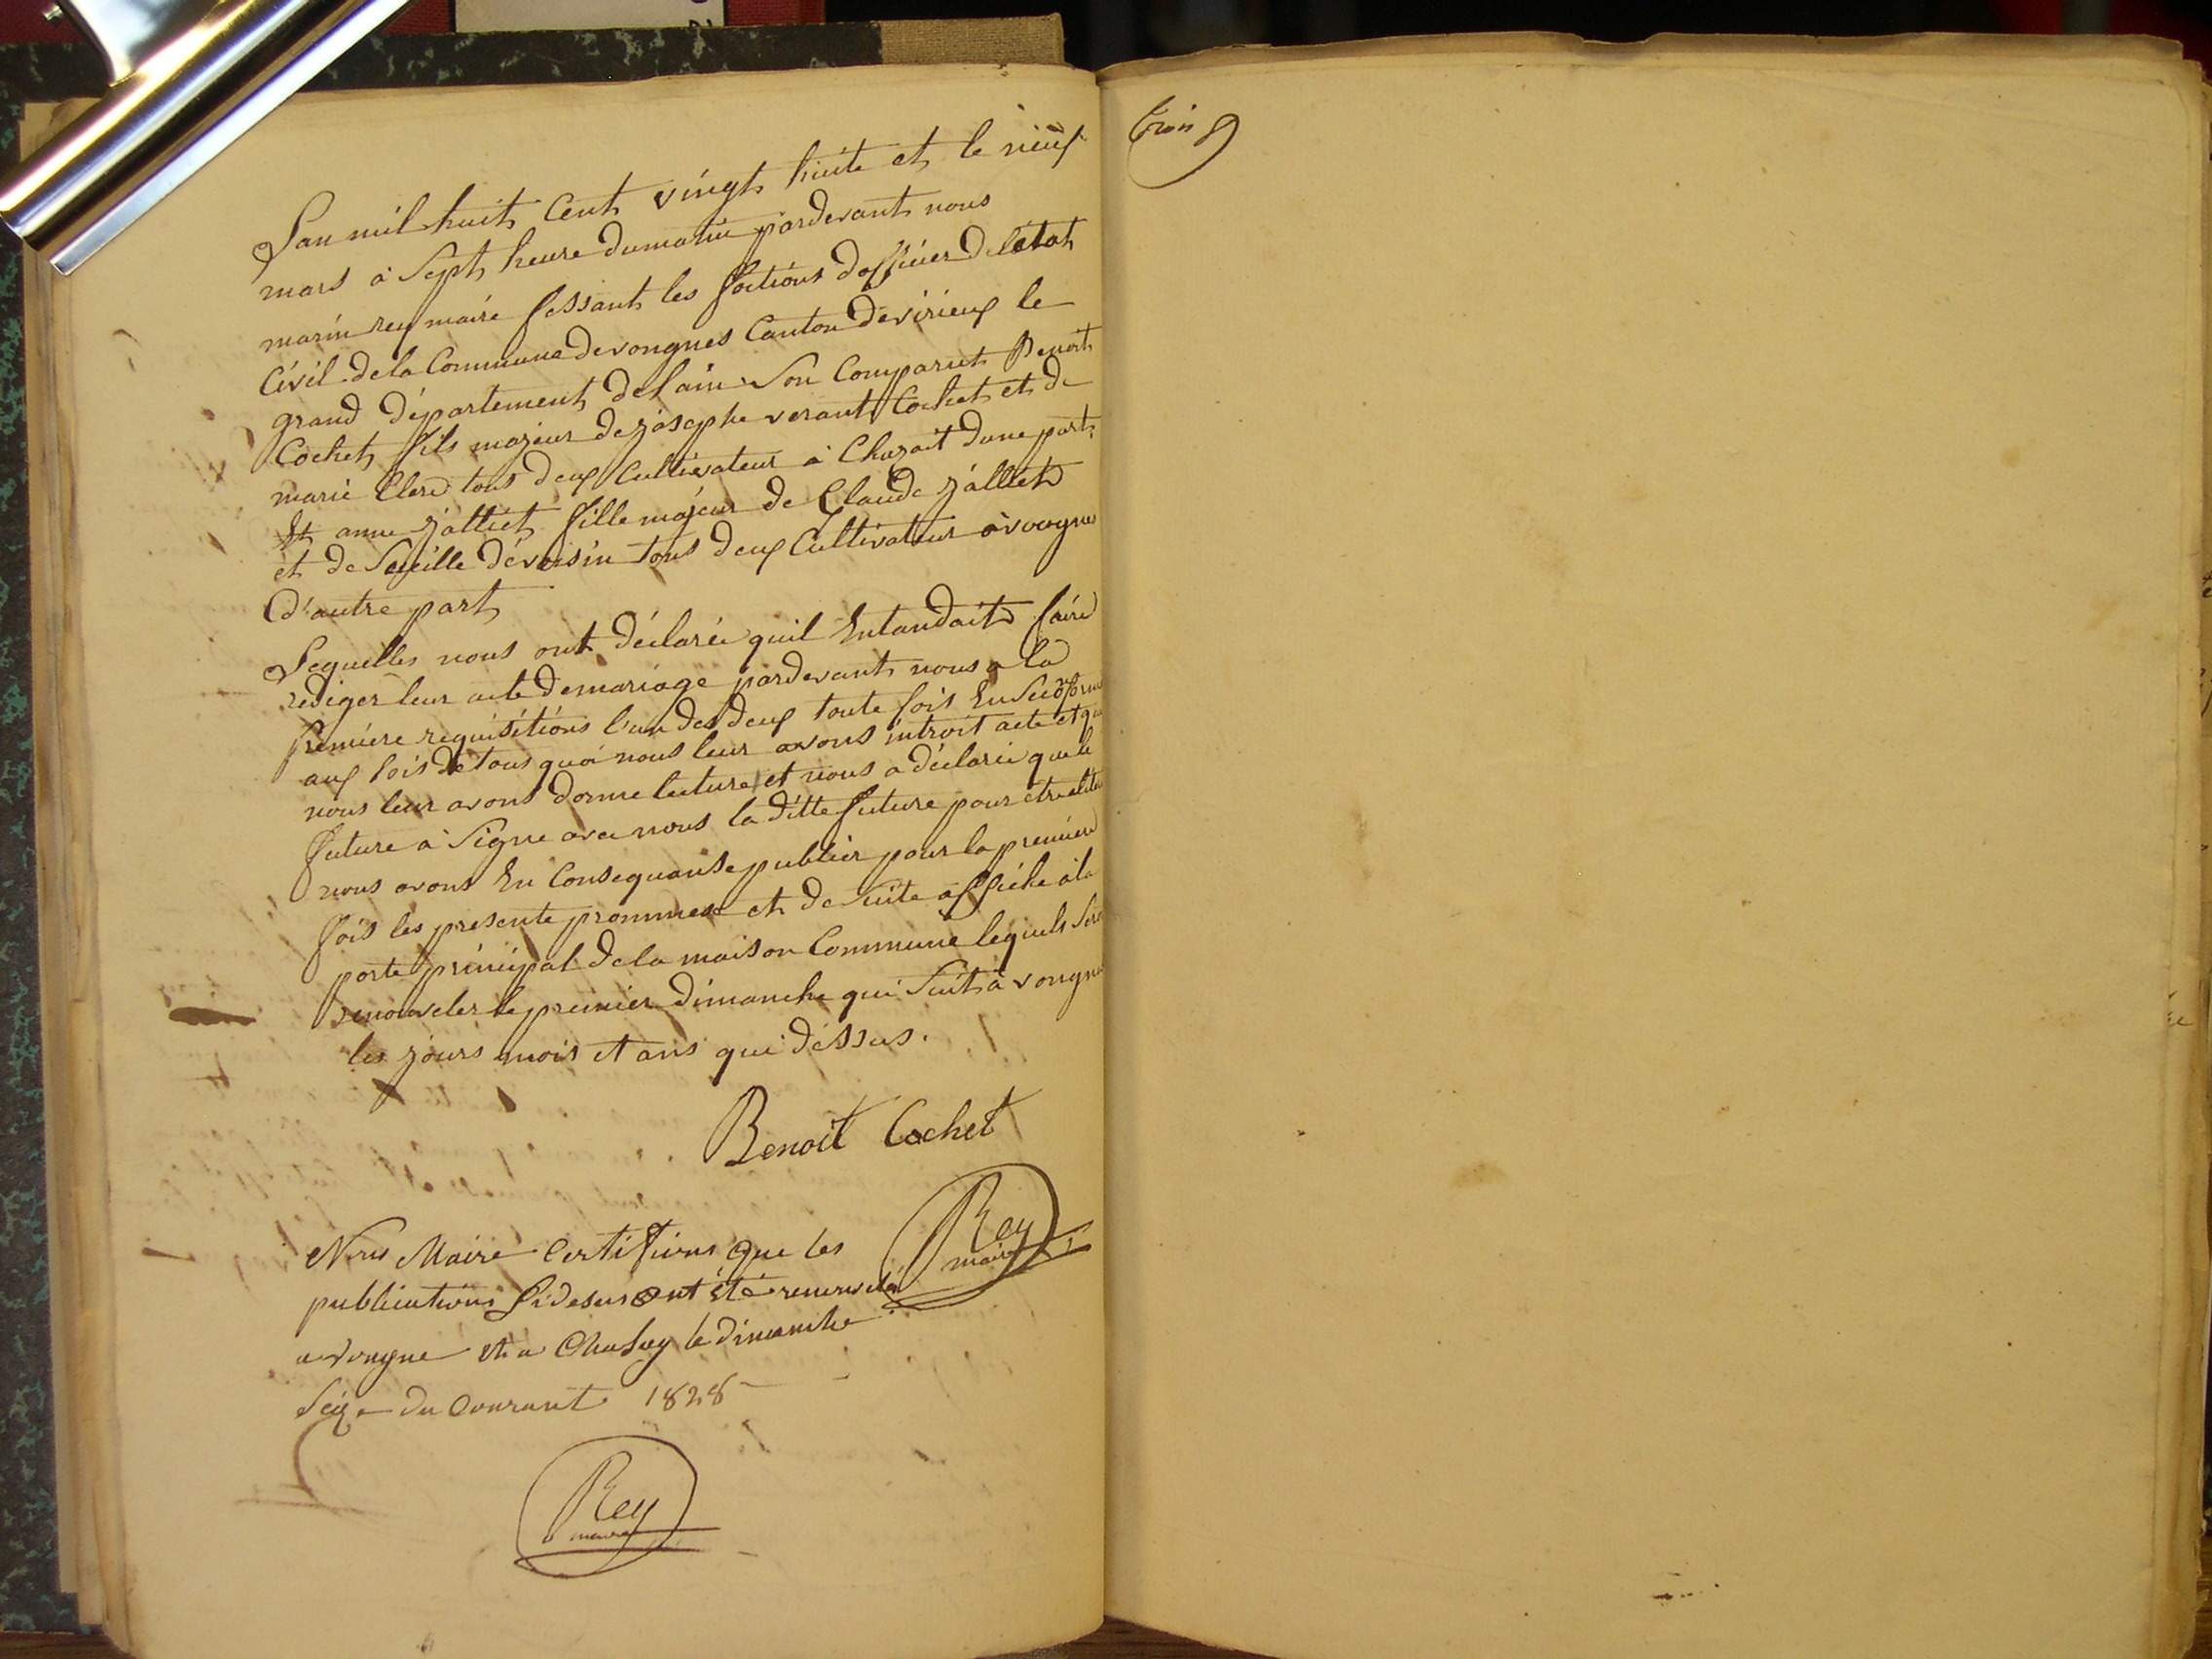 Lan mil huit Cent vingt huite et le neuf
mars à Sept heure dumatin pardevant nous
marin rey maire fessant les foctions dofficier deletat
Civil dela Commune devongnes Canton devirieux le
grand département delain Son Comparut Benoit
Cochet fils majeur dejosephe verant Cochet et de
marie Clerc tous deux Cultivateur à Chazait dune part
Et anne jalliet fille majeur de Claude jalliet
et de deversin tous deux Cultivateur àvongnes
d'autre part
Lequelles nous ont déclarée quil Entandait faire
rediger leur acte demariage pardevant nous a la
premiere requisitions l'un des deux toute fois En
aux lois de tous quoi nous leur avons introit acte et que
nous leur avons donne lecture et nous a déclarée que le
future à Signe avec nous la ditte future pour
nous avons En Consequanse publier pour la premiere
fois les presente prommese et de Suite affiche à la
porte principal dela maison Commune lequels Sera
renouveler le premier dimanche qui Suit à vongnes
les jours mois et ans que dessus.
Benoit Cochet
Rey
maire
Nous Maire Certifions que les
publications Sidesus ont été renouvelé
a vongne et a Chasey le dimanche
Seize du Courant 1828
Rey
maire
trois